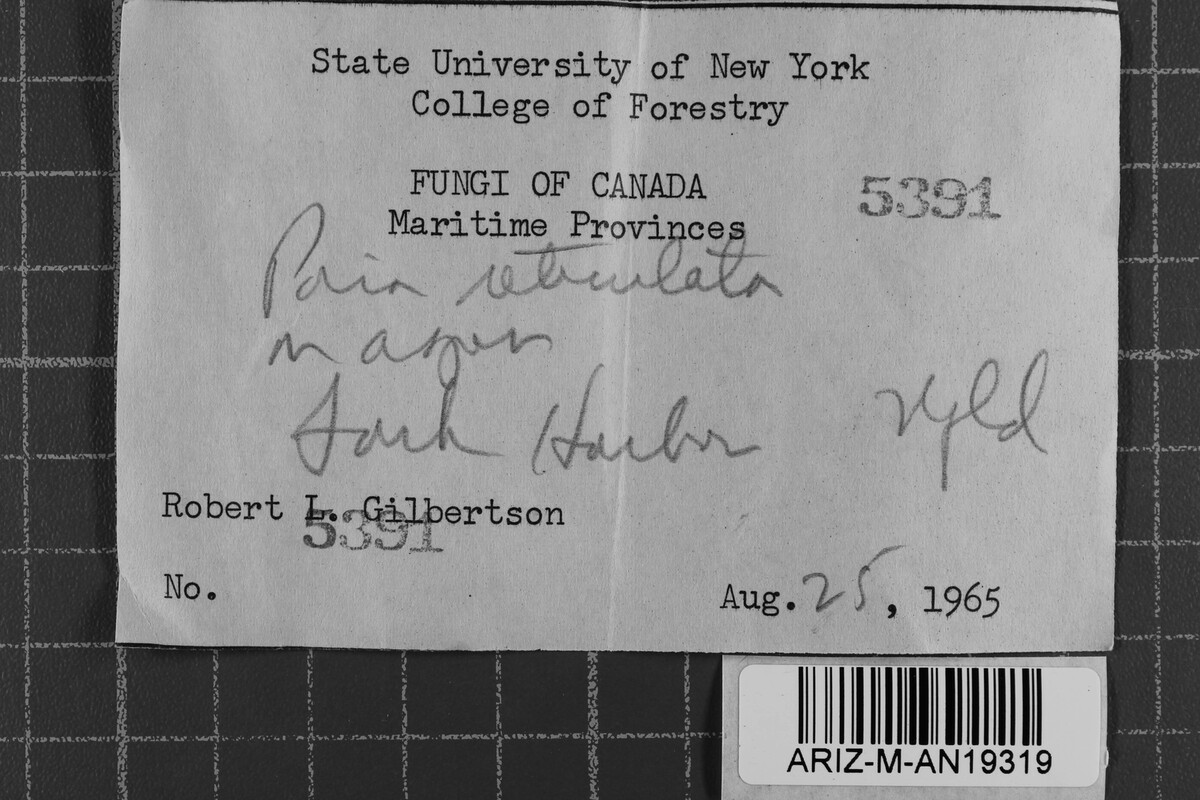 State University of New York
College of Forestry
FUNGI OF CANADA
5391
Maritime Provinces
Poria reticulata
on aspen
Harbor Nfld
Robert L. Gilbertson
5391
No.
Aug. 25, 1965
ARIZ-M-AN19319